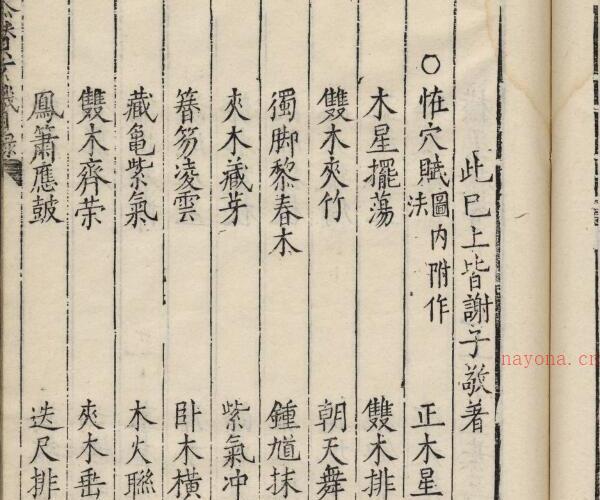 此巳上皆謝子敬著
○恠穴賦圖内附作法
正木星
木星擺蕩
雙木排
雙木夾竹
朝天舞
獨脚黎春木
鍾馗抹
夾木藏芽
紫氣冲
簪笏凌雲
卧木橫
藏龜紫氣
木火聯
雙木齊荣
夾木垂
鳳簫應皷
迭尺排
nayona.cn